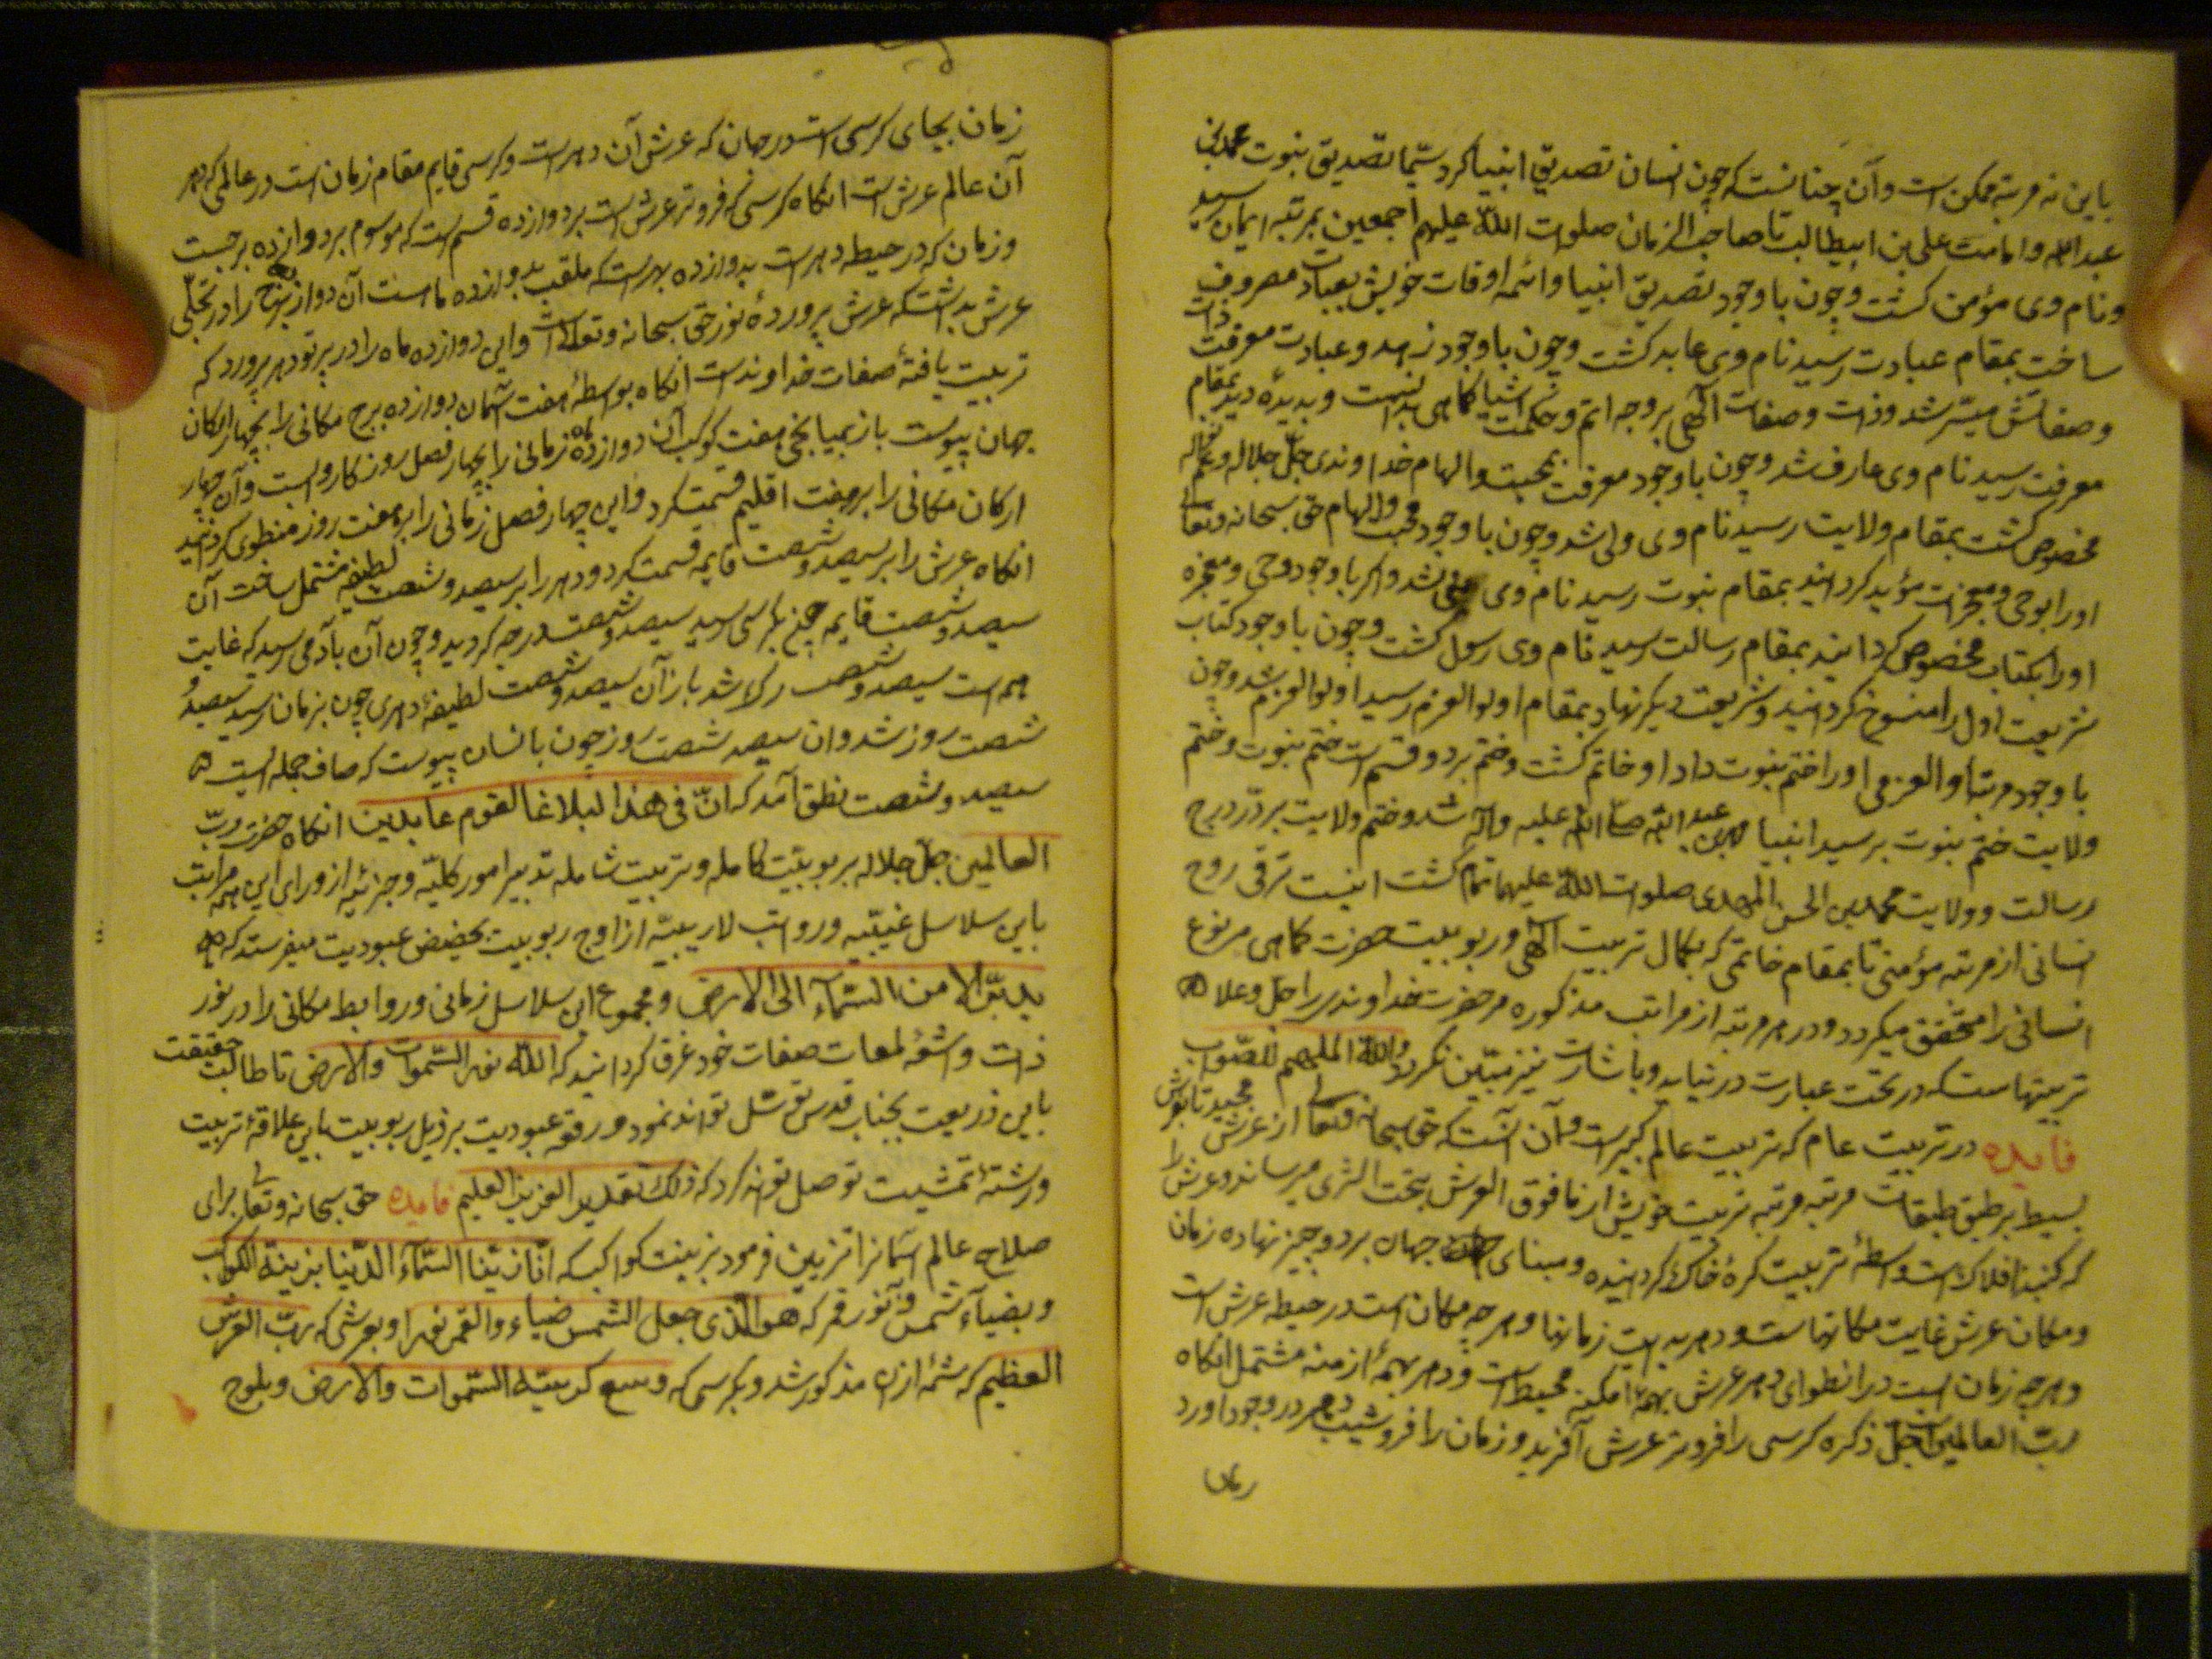 باین نه مرتبه ممکن است و آن چنانست که چون انسان تصدیق انبیا کرد سیّما تصدیق نبوت محمد بن
عبدالله و امامت علی بن ابیطالب تا صاحب الزمان صلوات اللّه علیهم اجمعین بمرتبه ایمان رسید
و نام وی مؤمن کشت و چون با وجود تصدیق انبیا و ائمه اوقات خویش بعبادت مصروف
ساخت بمقام عبادت رسید نام وی عابد کشت و چون با وجود زهد و عبادت معرفت ذات
و صفاتش میسّر شد و ذات و صفات آلهی بر وجه اتم و حکمت اشیا کماهی بدانست و بدیدهٔ دید بمقام
معرفت رسید نام وی عارف شد و چون با وجود معرفت بمحبت و الهام خداوندی جلّ جلاله و عمّ نواله
مخصوص کشت بمقام ولایت رسید نام وی ولی شد و چون با وجود محبت و الهام حق سبحانه و تعالی
او را بوحی و معجزات مؤید کردانید بمقام نبوت رسید نام وی نبی شد و اکر با وجود وحی و معجزه
او را بکتاب مخصوص کردانید بمقام رسالت رسید نام وی رسول کشت و چون با وجود کتاب
شریعت اول را منسوخ کردانید و شریعت دیکر نهاد بمقام اولوالعزم رسید اولوالعزم شد و چون
با وجود مرتبه اوالعزمی او را ختم نبوت داد او خاتم کشت و ختم بر دو قسم است ختم نبوت و ختم
ولایت ختم نبوت بر سید انبیا محمد بن عبد اللّه صلّی اللّه علیه وآله شد و ختم ولایت بر درّ درج
رسالت و ولایت محمد بن الحسن المهدی صلوات اللّه علیهما تمام کشت اینست ترقی روح
انسانی از مرتبه مؤمنی تا بمقام خاتمی که بکمال تربیت آلهی و ربوبیت حضرت کماهی مر نوع
انسانی را محقق میکردد و در هر مرتبه از مراتب مذکوره مر حضرت خداوندی را جل و علا
تربیتهاست که در تحت عبارت در نیاید و باشارت نیز مبیّن نکردد واللّه الملهم للصّواب
فایده در تربیت عام که تربیت عالم کبیر است و آن آنست که حق سبحانه و تعالی از عرش مجید تا بفرش
بسیط بر طبق طبقات مرتبه مرتبه تربیت خویش از ما فوق العرش بتحت الثری میرساند و عرش را
که کنبد افلاک است واسطهٔ تربیت کرهٔ خاک کردانیده و مبنای جهان بر دو چیز نهاده زمان
و مکان عرش غایت مکانهاست و دهر نهایت زمانها و هر چه مکان است در حیطه عرش است
و هر چه زمان است در انطوای دهر عرش بهمهٔ امکنه محیط است و دهر بهمهٔ ازمنه مشتمل انکاه
ربّ العالمین جلّ ذکره کرسی را فروتر عرش آفرید و زمان را فروشیب دهر در وجود اورد
زمان
زمان بجای کرسی است در جهان که عرش آن دهر است و کرسی قایم مقام زمان است در عالمی که دهر
آن عالم عرش است انکاه کرسی که فروتر عرش است بر دوازده قسم است که موسوم بر دوازده برجست
و زمان که در حیطه دهر است بدوازده بهر است که ملقب بدوازده ماهست آن دوازده برج را در تجلّی
عرش بداشت که عرش پروردهٔ نور حق سبحانه و تعالی است و این دوازده ماه را در پرتو دهر پرورد که
تربیت یافتهٔ صفات خداوندست انکاه بواسطهٔ هفت آسمان دوازده برج مکانی را بچهار ارکان
جهان پیوست باز بمیانجی هفت کوکب آن دوازده ماه زمانی را بچهار فصل روزکار وابست و آن چهار
ارکان مکانی را بر هفت اقلیم قسمت کرد و این چهار فصل زمانی را بر هفت روز منطوی کردانید
انکاه عرش را بر سیصد و شصت قایمه قسمت کرد و دهر را بر سیصد و شصت لطیفه مشتمل ساخت آن
سیصد و شصت قایمه چون بکرسی رسید سیصد و شصت درجه کردید و چون آن بآدمی رسید که غایت
همه است سیصد و شصت رک شد باز آن سیصد و شصت لطیفهٔ دهری چون بزمان رسید سیصد و
شصت روز شد و ان سیصد شصت روز چون بانسان پیوست که صاف جمله است
سیصد و شصت نطق آمد که انّ فی هذا لبلاغا لقوم عابدین انکاه حضرت ربّ
العالمین جلّ جلاله بربوبیّت کامله و تربیت شامله تدبیر امور کلیّه و جزئیه از ورای این همه مراتب
باین سلاسل غیبیّه و رواتب لاریبیّه از اوج ربوبیت بحضیض عبودیت میفرستد که
یدبّر الامر من السّمآء الی الارض و مجموع این سلاسل زمانی و روابط مکانی را در نور
ذات و اشعهٔ لمعات صفات خود غرق کردانید که اللّه نور السّموات والارض تا طالب حقیقت
باین ذریعت بجناب قدس توسّل تواند نمود و رقعه عبودیت بر ذیل ربوبیت باین علاقهٔ تربیت
و رشتهٔ تمشیت توصل تواند کرد که ذلک تقدیر العزیز العلیم فایده حق سبحانه و تعالی برای
صلاح عالم اسمانرا تزیین فرمود بزینت کواکب که انّا زیّنا السّمآء الدّنیا بزینة الکواکب
و بضیآء شمس و بنور قمر که هو الّذی جعل الشمس ضیاء والقمر نورا و بعرشی که ربّ العرش
العظیم که شمهٔ ازان مذکور شد و بکرسی که وسع کرسیّه السّموات والارض و بلوح